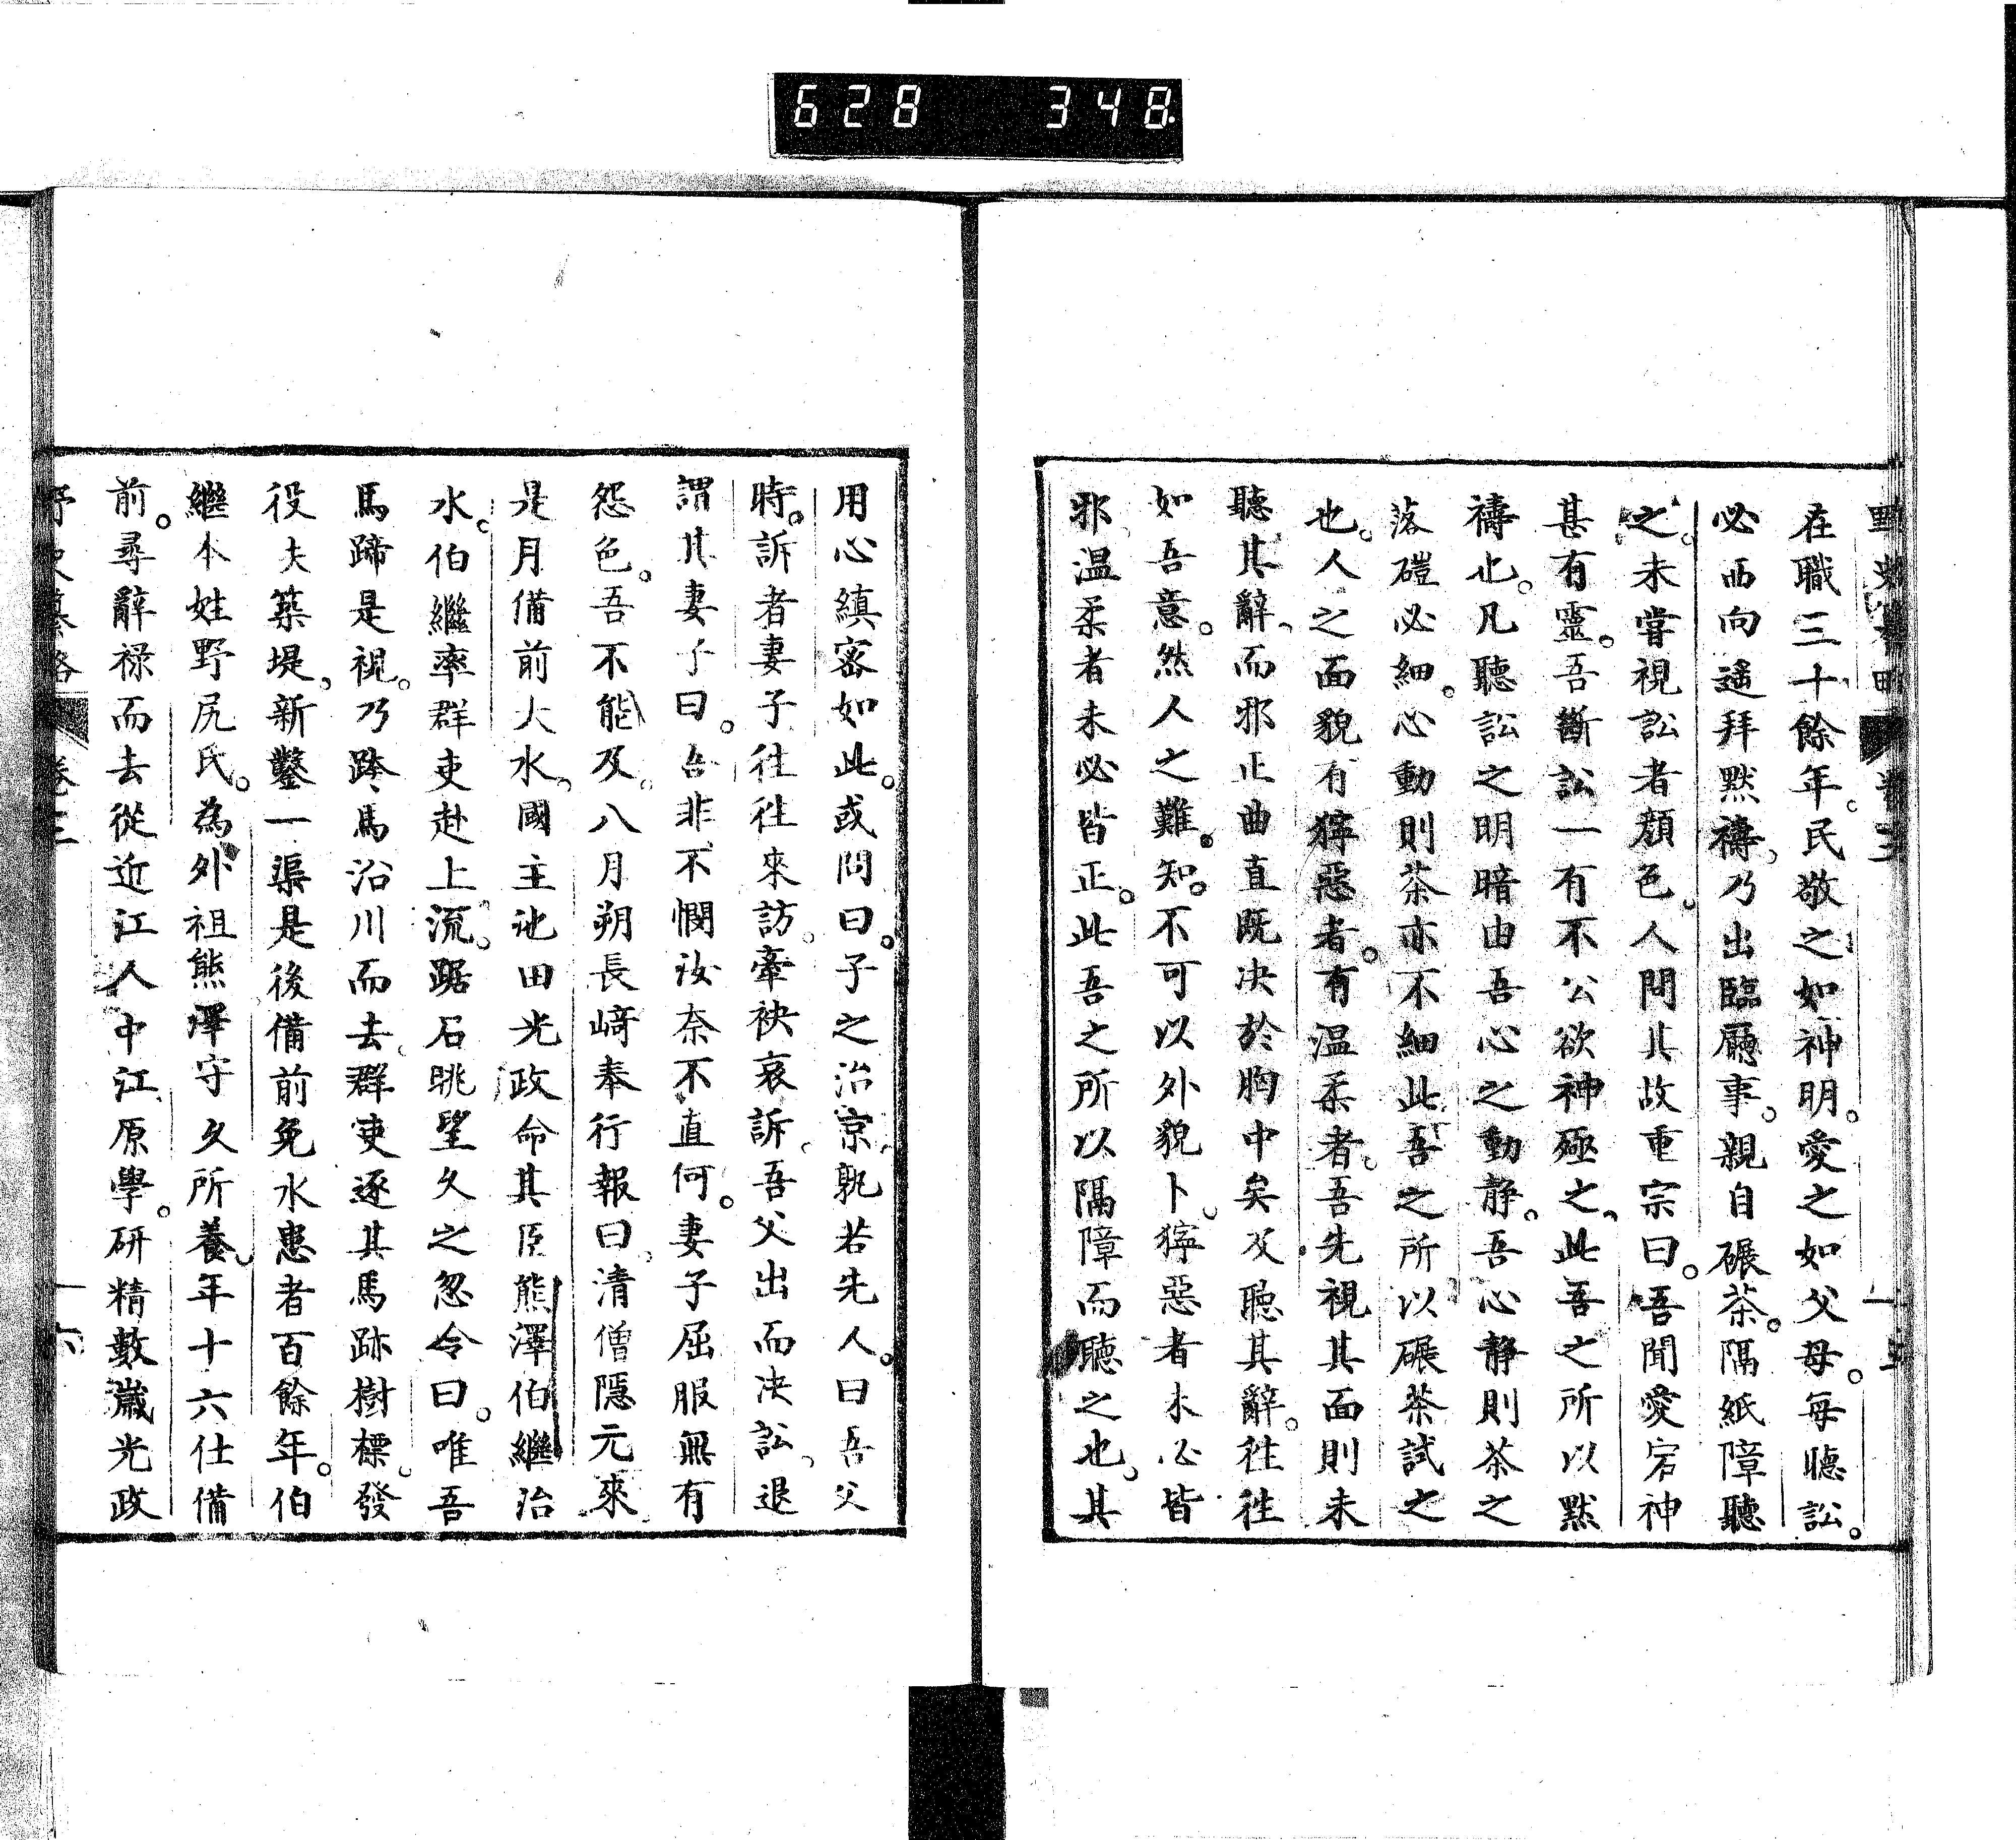 628 348
在職三十餘年。民敬之如神明。愛之如父母。每聽訟。
必西向遙拜黙禱、乃出臨廳事。親自碾茶。隔紙障聽
之。未嘗視訟者顏色。人問其故重宗曰。吾聞愛宕神
甚有靈。吾斷訟一有不公欲神殛之、此吾之所以黙
禱也。凡聽訟之明暗由吾心之動静。吾心静則茶之
落磑必細。心動則茶亦不細此吾之所以碾茶試之
也。人之面貌有獰惡者。有温柔者。吾先視其面則未
聽其辭、而邪正曲直既决於胸中矣及聽其辭。徃徃
如吾意。然人之難。知。不可以外貌卜。獰惡者未必皆
邪温柔者未必皆正。此吾之所以隔障而聽之也、其
用心縝密如此。或問曰。子之治京、孰若先人。曰吾父
時。訴者妻子徃徃來訪。牽袂哀訴。吾父出而决訟、退
謂其妻子曰。吾非不憫汝奈不直何。妻子屈服無有
怨色。吾不能及。八月朔長﨑奉行報曰、清僧隱元來
是月備前大水、國主池田光政命其臣熊澤伯繼治
水。伯繼率群吏赴上流。踞石眺望久之忽令曰。唯吾
馬蹄是視。乃跨馬沿川而去。群吏逐其馬跡樹標。發
役夫築堤、新鑿一渠是後備前免水患者百餘年。伯
繼本姓野尻氏。為外祖熊澤守久所養、年十六仕備
前。尋辭祿而去從近江人中江原學。研精數歲光政
卷三
十六